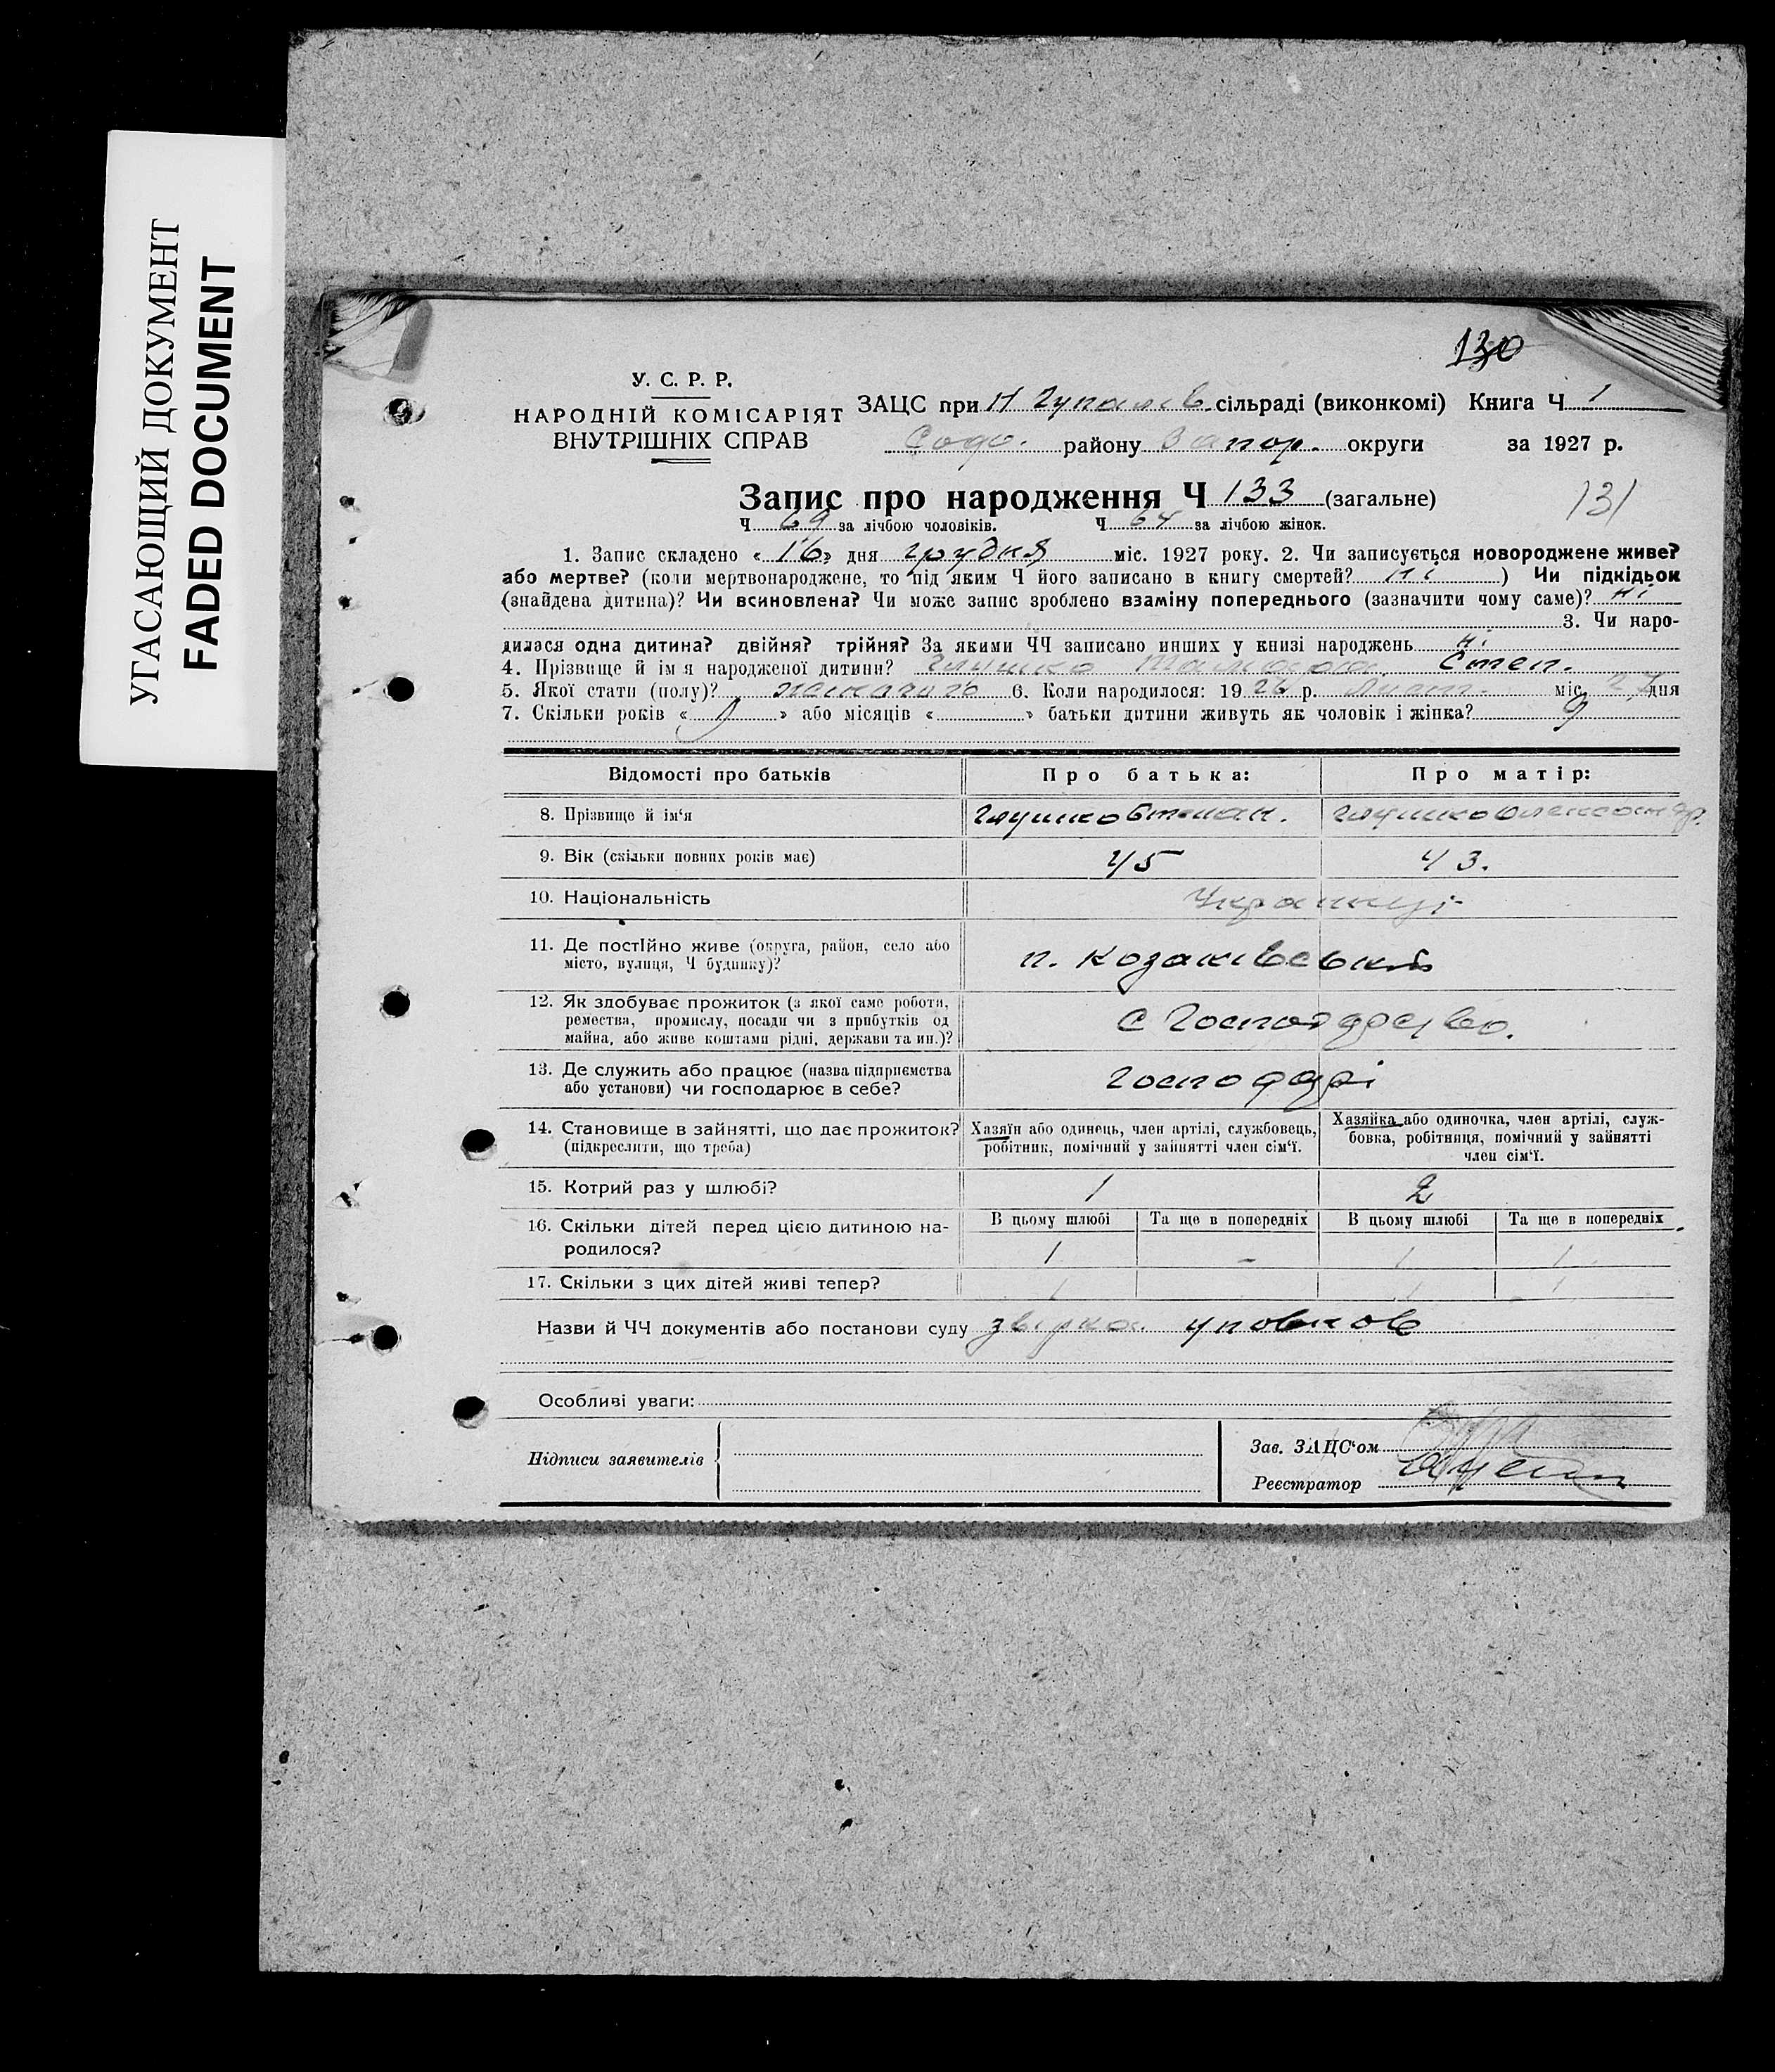 УГАСАЮЩИЙ ДОКУМЕНТ
FADED DOCUMENT
130
У. С. Р. Р.
НАРОДНІЙ КОМІСАРІЯТ
ВНУТРІШНІХ СПРАВ
ЗАЦС при Н Гупалів. сільраді (виконкомі) Книга Ч 1
району Запор. округи за 1927 р.
Запис про народження Ч 133 (загальне)
131
Ч 69 за лічбою чоловіків. Ч 64 за лічбою жінок.
1. Запис складено « 16 » дня грудня міс. 1927 року. 2. Чи записується новороджене живе?
або мертве? (коли мертвонароджене, то під яким Ч його записано в книгу смертей? ні ) Чи підкідьок
(знайдена дитина)? Чи всиновлена? Чи може запис зроблено взаміну попереднього (зазначити чому саме)? ні
3. Чи наро-
дилася одна дитина? двійня? трійня? За якими ЧЧ записано инших у книзі народжень ні
4. Прізвище й ім я народженої дитини? Глушко Степ.
5. Якої стати (полу)? 6. Коли народилося: 1926 р. міс. 27 дня
7. Скільки років « » або місяців « » батьки дитини живуть як чоловік і жінка? 9
Відомості про батьків
Про батька:
Про матір:
8. Прізвище й ім‘я
Глушко Степан.
Глушко Олександр.
9. Вік (скільки повних років має)
45
43.
10. Національність
Українці
11. Де постІйно живе (округа, район, село або
місто, вулиця, Ч будинку)?
п. Козаківський
12. Як здобуває прожиток (з якої саме роботи,
ремества, промислу, посади чи з прибутків од
майна, або живе коштами рідні, держави та ин.)?
С Господарство.
13. Де служить або працює (назва підприємства
або установи) чи господарює в себе?
господарі
14. Становище в зайнятті, що дає прожиток?
(підкреслити, що треба)
Хазяїн або одинець, член артілі, службовець,
робітник, помічний у зайнятті член сім‘ї.
Хазяйка або одиночка, член артілі, служ-
бовка, робітниця, помічний у зайнятті
член сім‘ї.
15. Котрий раз у шлюбі?
1
2
16. Скільки дітей перед цією дитиною на-
родилося?
В цьому шлюбі
Та ще в попередніх
В цьому шлюбі
Та ще в попередніх
1
-
1
1
17. Скільки з цих дітей живі тепер?
1
1
1
Назви й ЧЧ документів або постанови суду звірка уповнов
Особливі уваги:
Підписи заявителів
Зав. ЗАЦС‘ом
Реєстратор